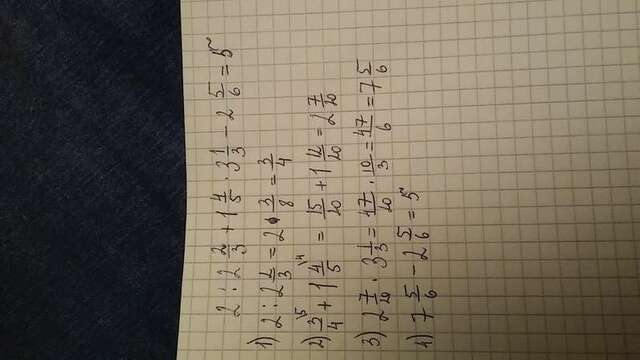 2 : 2 2/3 + 1 4/5 · 3 1/3 - 2 5/6 = 5
1) 2 : 2 2/3 = 2 · 3/8 = 3/4
2) 3/4 \5 + 1 4/5 \4 = 15/20 + 1 12/20 = 2 7/20
3) 2 7/20 · 3 1/3 = 47/20 · 10/3 = 47/6 = 7 5/6
4) 7 5/6 - 2 5/6 = 5